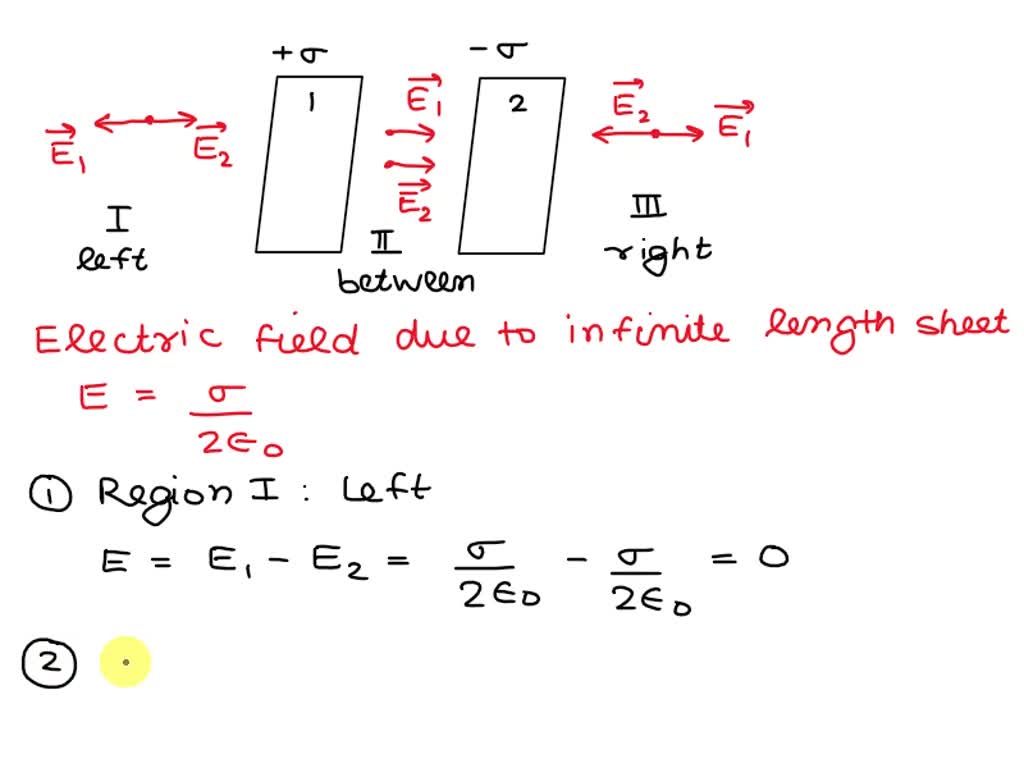 +σ -σ
1 E₁ 2 E₂ E₁
E₁ E₂
E₂
I II III
left between right
Electric field due to infinite length sheet
E = σ / 2ϵ₀
① Region I : Left
E = E₁ - E₂ = σ / 2ϵ₀ - σ / 2ϵ₀ = 0
②